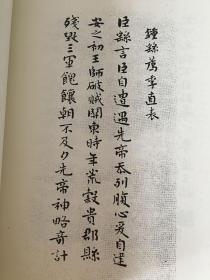 鍾繇薦季直表
臣繇言臣自遭遇先帝忝列腹心爰自建
安之初王師破賊關東時年荒穀貴郡縣
殘毀三軍餽饟朝不及夕先帝神略奇計